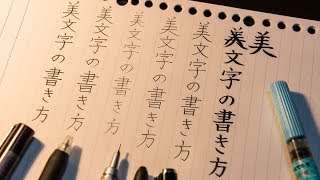 美
美文字の書き方
美文字の書き方
美文字の書き方
美文字の書き方
美文字の書き方
美文字の書き方